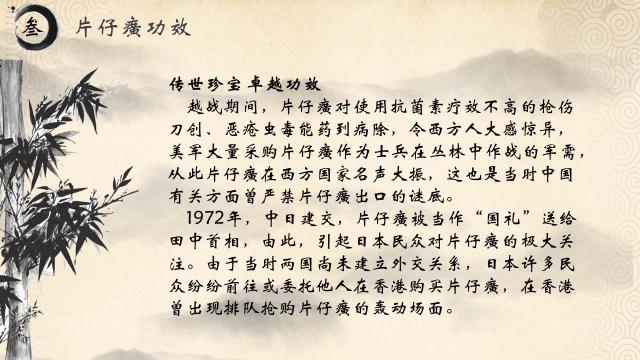 叁
片仔癀功效
传世珍宝 卓越功效
越战期间，片仔癀对使用抗菌素疗效不高的枪伤
刀创、恶疮虫毒能药到病除，令西方人大感惊异，
美军大量采购片仔癀作为士兵在丛林中作战的军需，
从此片仔癀在西方国家名声大振，这也是当时中国
有关方面曾严禁片仔癀出口的谜底。
1972年，中日建交，片仔癀被当作“国礼”送给
田中首相，由此，引起日本民众对片仔癀的极大关
注。由于当时两国尚未建立外交关系，日本许多民
众纷纷前往或委托他人在香港购买片仔癀，在香港
曾出现排队抢购片仔癀的轰动场面。